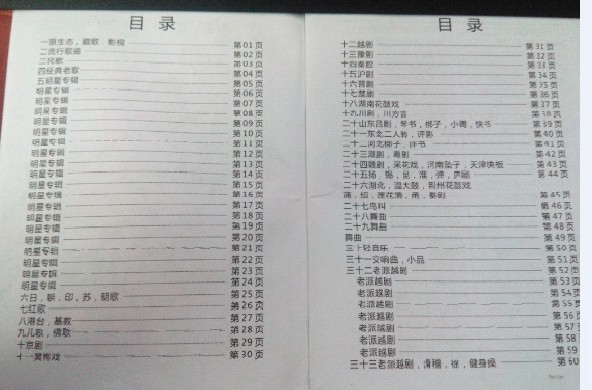 目 录
一原生态，藏歌．影视 第01页
二流行歌曲 第02页
三民歌 第03页
四经典老歌 第04页
五明星专辑 第05页
明星专辑 第06页
明星专辑 第07页
明星专辑 第08页
明星专辑 第09页
明星专辑 第10页
明星专辑 第11页
明星专辑 第12页
明星专辑 第13页
明星专辑 第14页
明星专辑 第15页
明星专辑 第16页
明星专辑 第17页
明星专辑 第18页
明星专辑 第19页
明星专辑 第20页
明星专辑 第21页
明星专辑 第22页
明星专辑 第23页
明星专辑 第24页
六日，朝．印，苏，胡歌 第25页
七红歌 第26页
八港台，基教 第27页
九儿歌，佛歌 第28页
十京剧 第29页
十一黄梅戏 第30页
目 录
十二越剧 第31页
十三豫剧 第32页
十四秦腔 第33页
十五沪剧 第34页
十六晋剧 第35页
十七楚剧 第36页
十八湖南花鼓戏 第37页
十九川剧，川方音 第38页
二十山东吕剧，琴书，梆子，小调，快书 第39页
二十一东北二人转，评剧 第40页
二十二河北梆子，评书 第41页
二十三潮剧，粤剧 第42页
二十四赣剧，采花戏，河南坠子，天津快板 第43页
二十五扬，锡，昆，淮，弹，庐剧 第44页
二十六湖北，温大鼓，荆州花鼓戏
蒲，绍，莲花落，甬，婺剧 第45页
二十七鸟叫 第46页
二十八舞曲 第47页
二十九舞曲 第48页
舞曲 第49页
三十轻音乐 第50页
三十一交响曲，小品 第51页
三十二老派越剧 第52页
老派越剧 第53页
老派越剧 第54页
老派越剧 第55页
老派越剧 第56页
老派越剧 第57页
老派越剧 第58页
老派越剧 第59
三十三老派越剧，滑稽，徐，健身操 第60